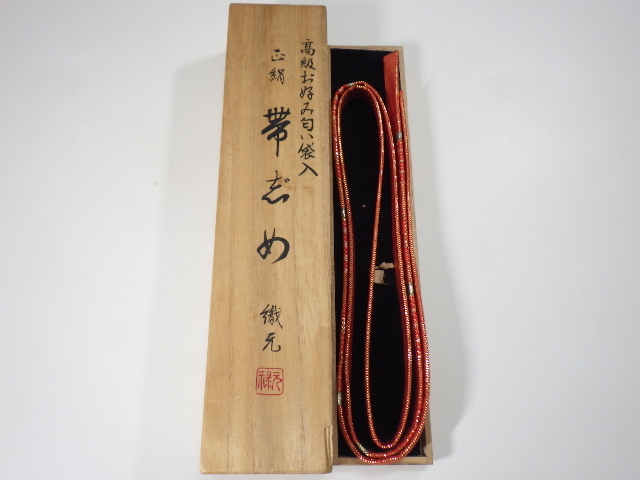 高級お好み匂い袋入
正絹
帯じめ
織元
元禄